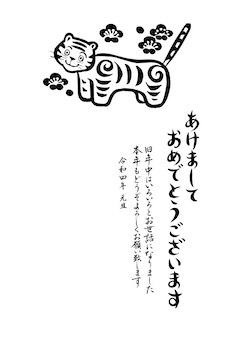 あけまして
おめでとうございます
旧年中はいろいろとお世話になりました
本年もどうぞよろしくお願い致します
令和四年 元旦